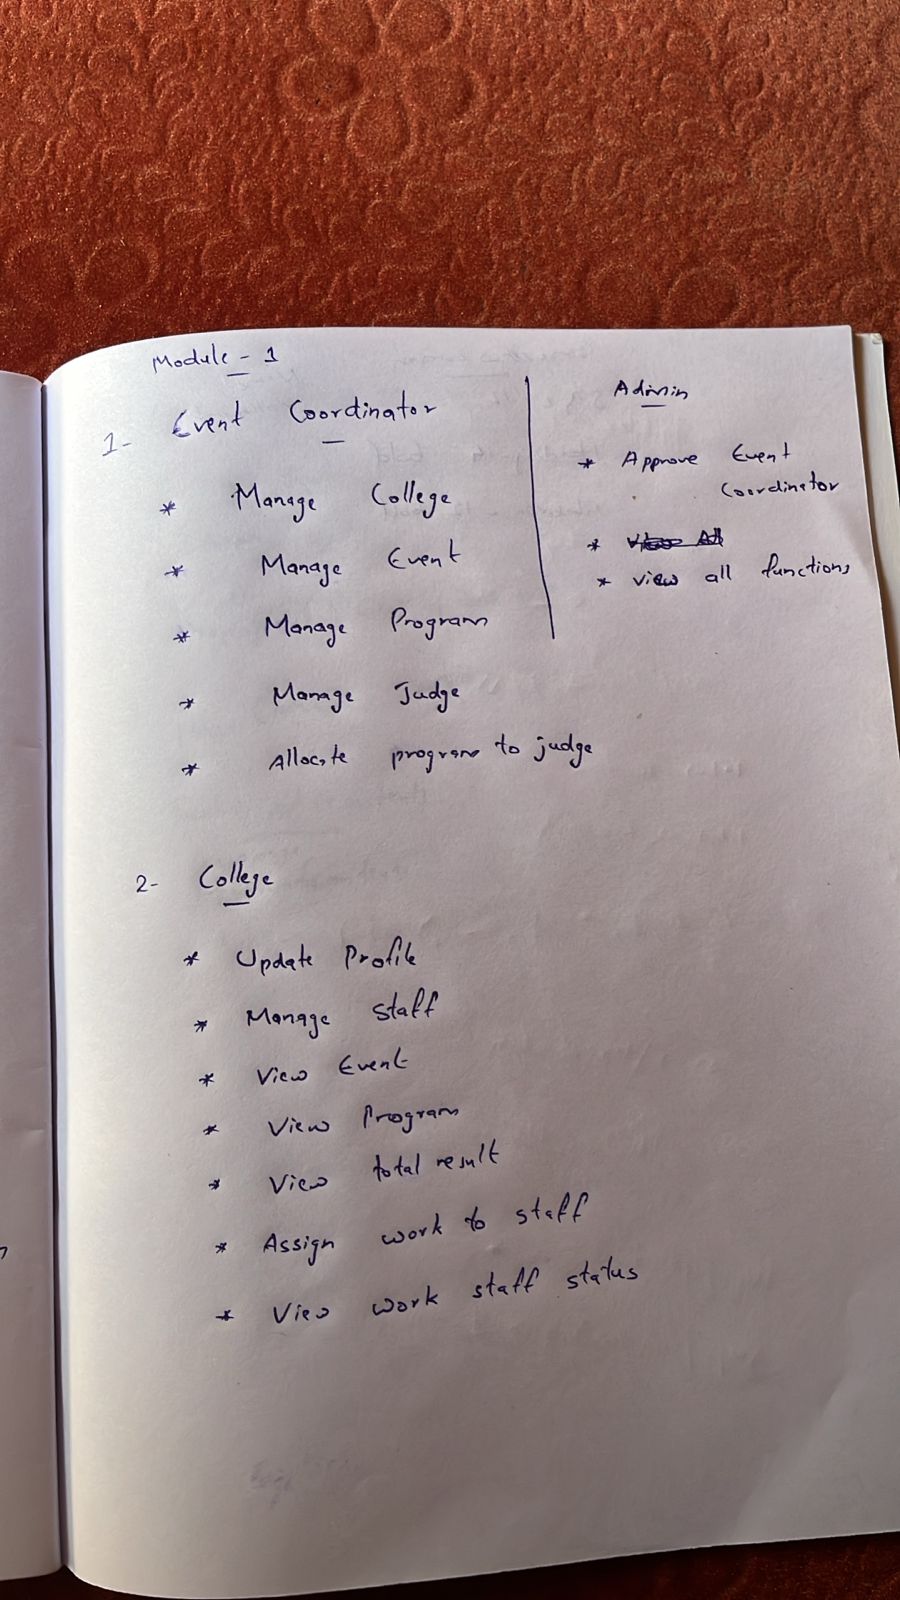 Module - 1
1- Event Coordinator
* Manage College
* Manage Event
* Manage Program
* Manage Judge
* Allocate program to judge
Admin
* Approve Event
Coordinator
*
* view all functions
2- College
* Update Profile
* Manage staff
* View Event
* View Program
* View total result
* Assign work to staff
* View work staff status